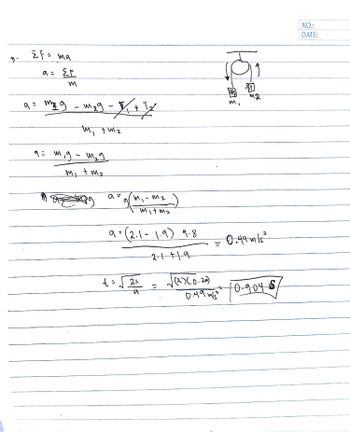 NO.:
DATE:
ΣF = ma
a = ΣF / m
m₁ m₂
a = m₁g - m₂g - T₁ + T₂ / m₁ + m₂
a = m₁g - m₂g / m₁ + m₂
a = g(m₁ - m₂ / m₁ + m₂)
a = (2.1 - 1.9) 9.8 / 2.1 + 1.9 = 0.49 m/s²
t = √2s/a = √(2)(0.20) / 0.49 m/s² = 0.904 s